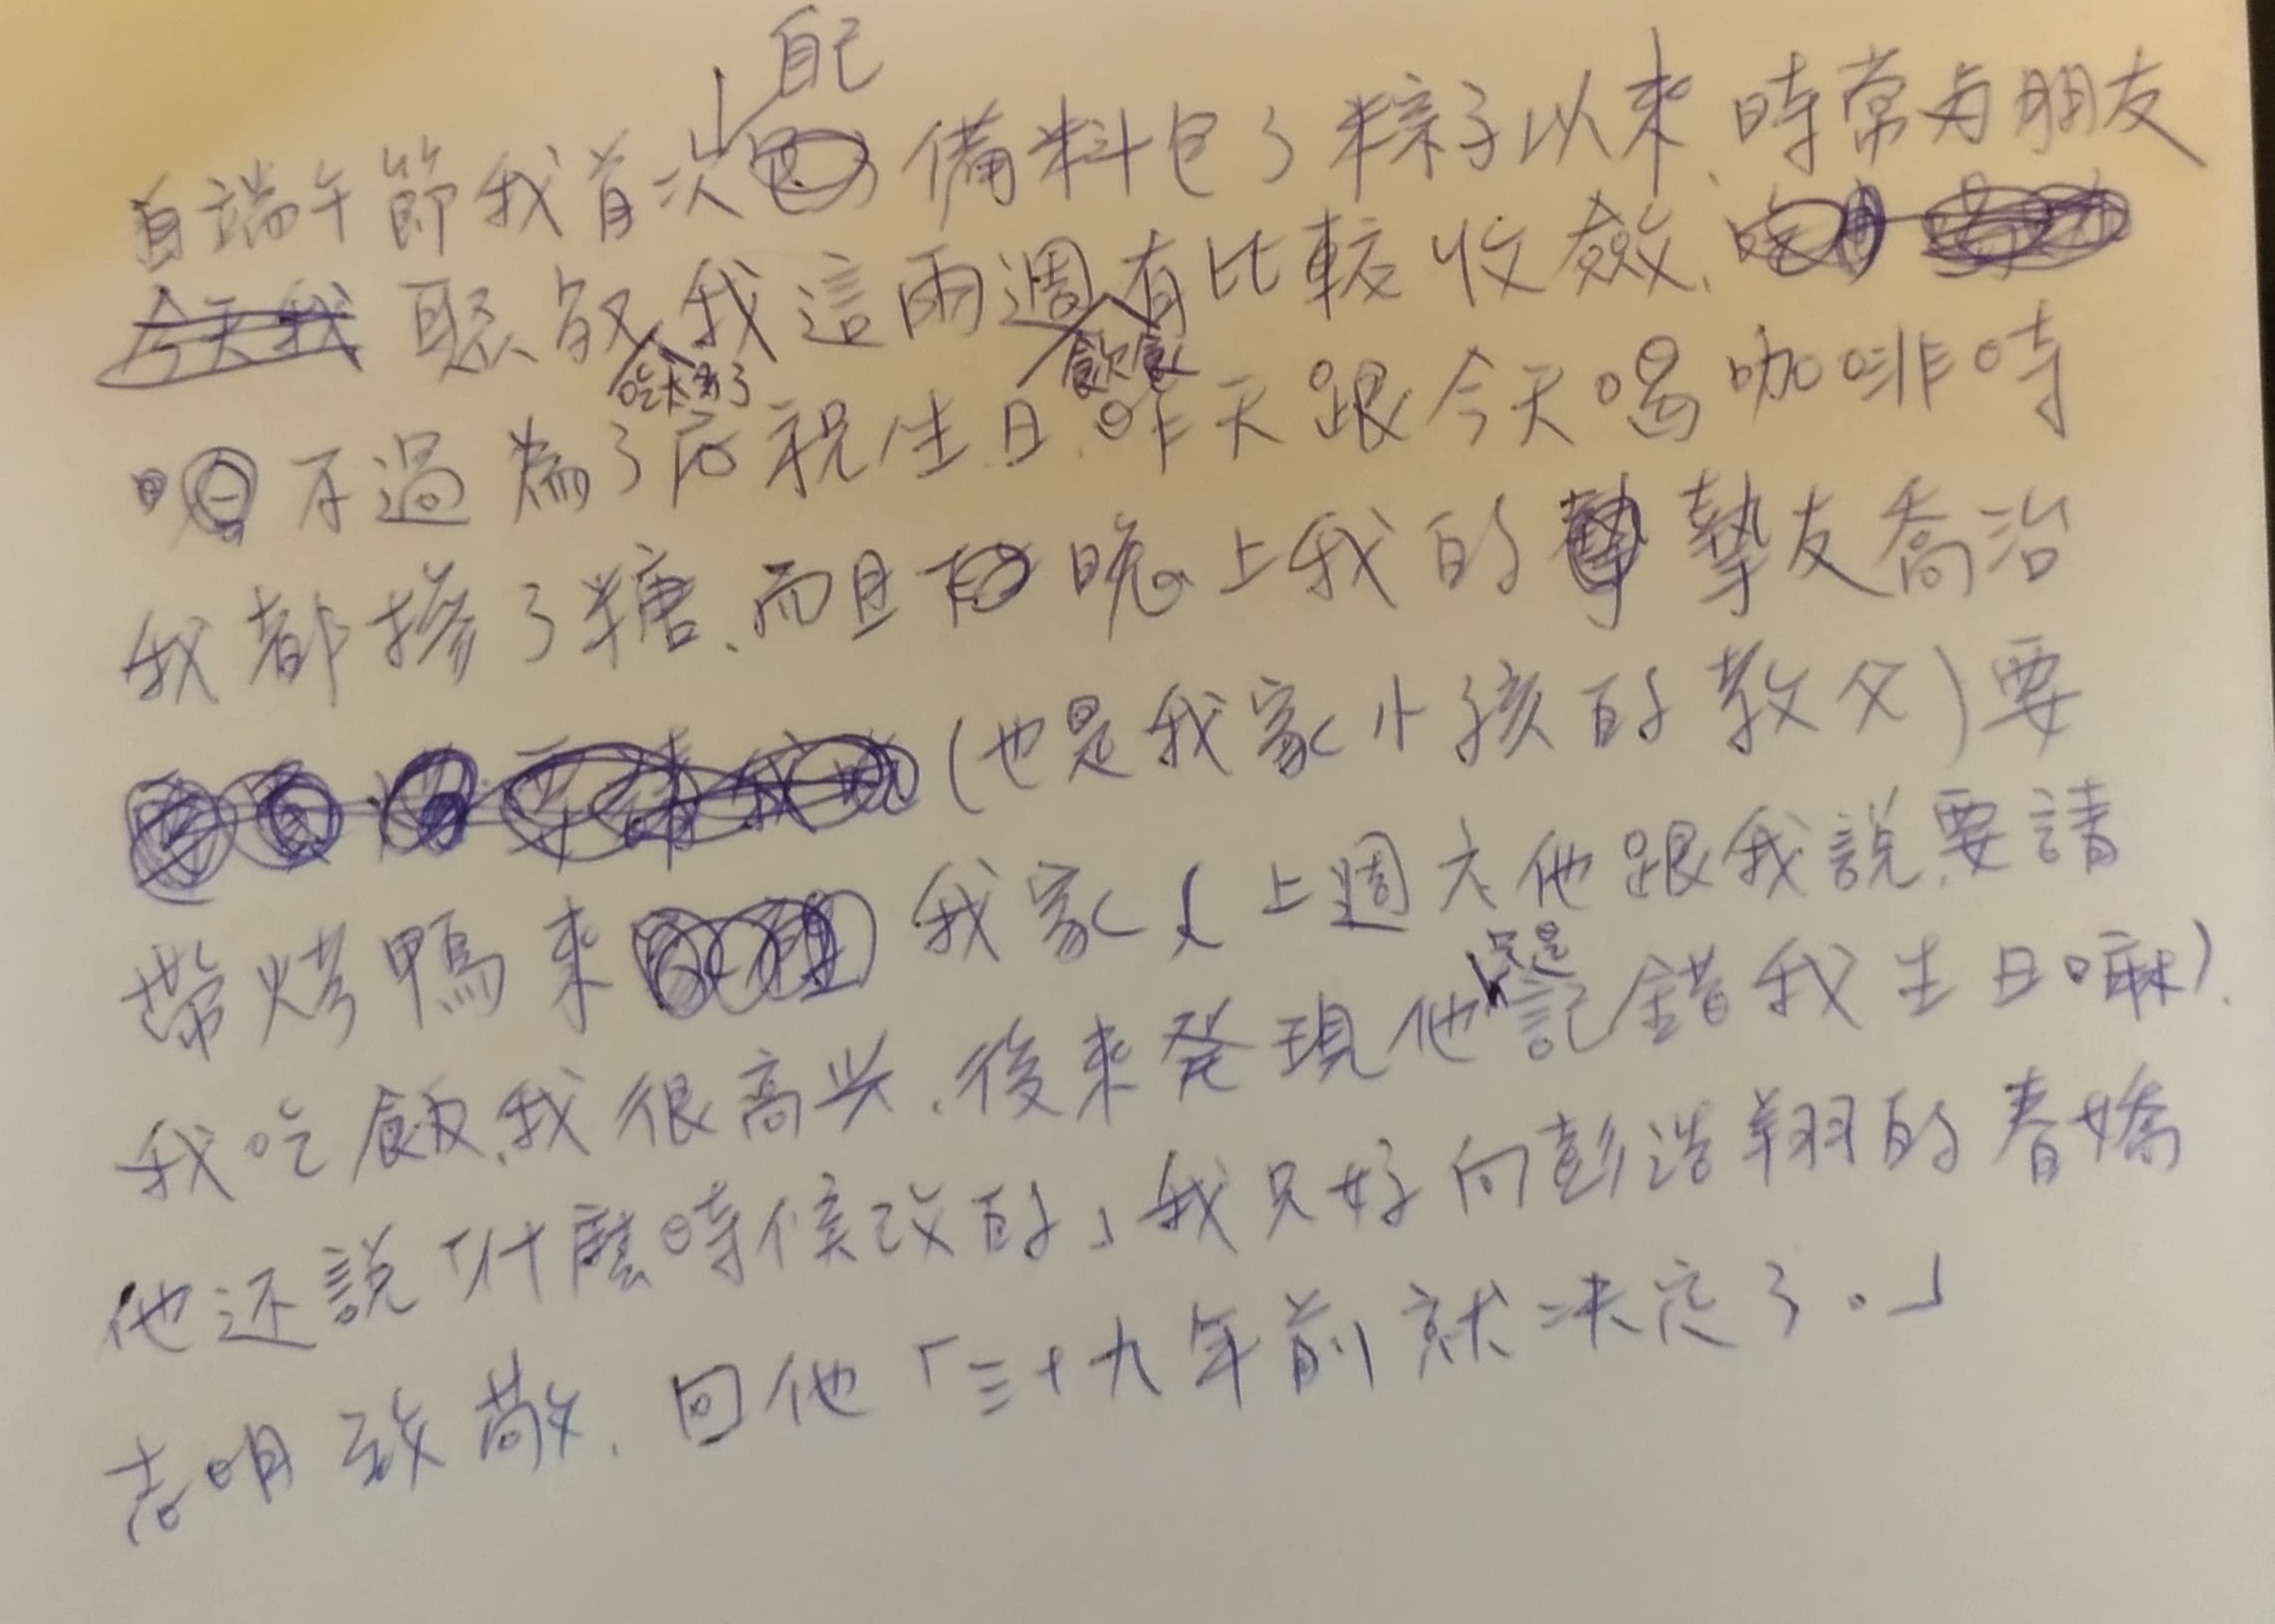 自端午節我首次自己備料包了粽子以來、時常与朋友
聚餐吃太多了、我這兩週飲食有比較收斂、
不過為了慶祝生日、昨天跟今天喝咖啡時
我都摻了糖、而且晚上我的摯友喬治
(也是我家小孩的教父)要
帶烤鴨來我家(上週六他跟我說、要請
我吃飯、我很高兴、後來発現他只是記錯我生日嘛)、
他还說「什麼時候改的」我只好向彭浩翔的春嬌
志明致敬、回他「三十九年前就決定了。」